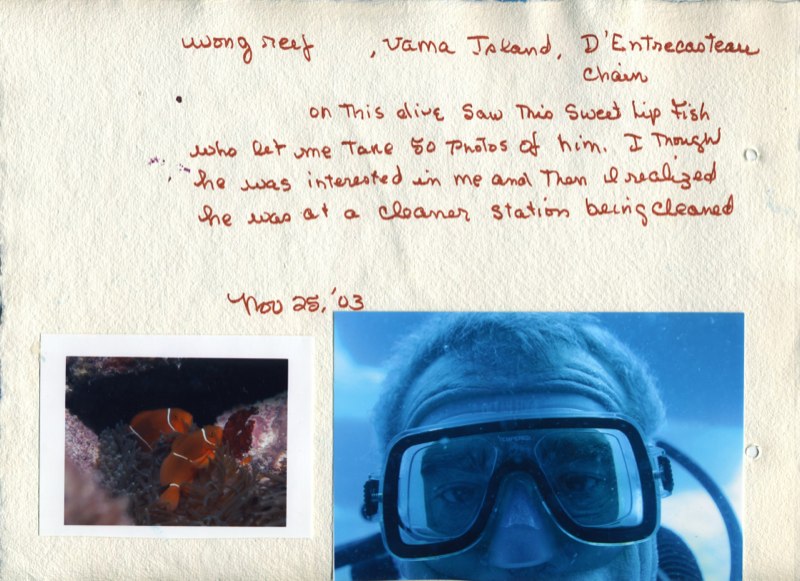 wong reef , Vama Island, D'Entrecasteau
Chain
on This dive Saw This Sweet Lip Fish
who let me Take 50 Photos of him. I Though
he was interested in me and Then I realized
he was at a cleaner station being cleaned
Nov 25, '03